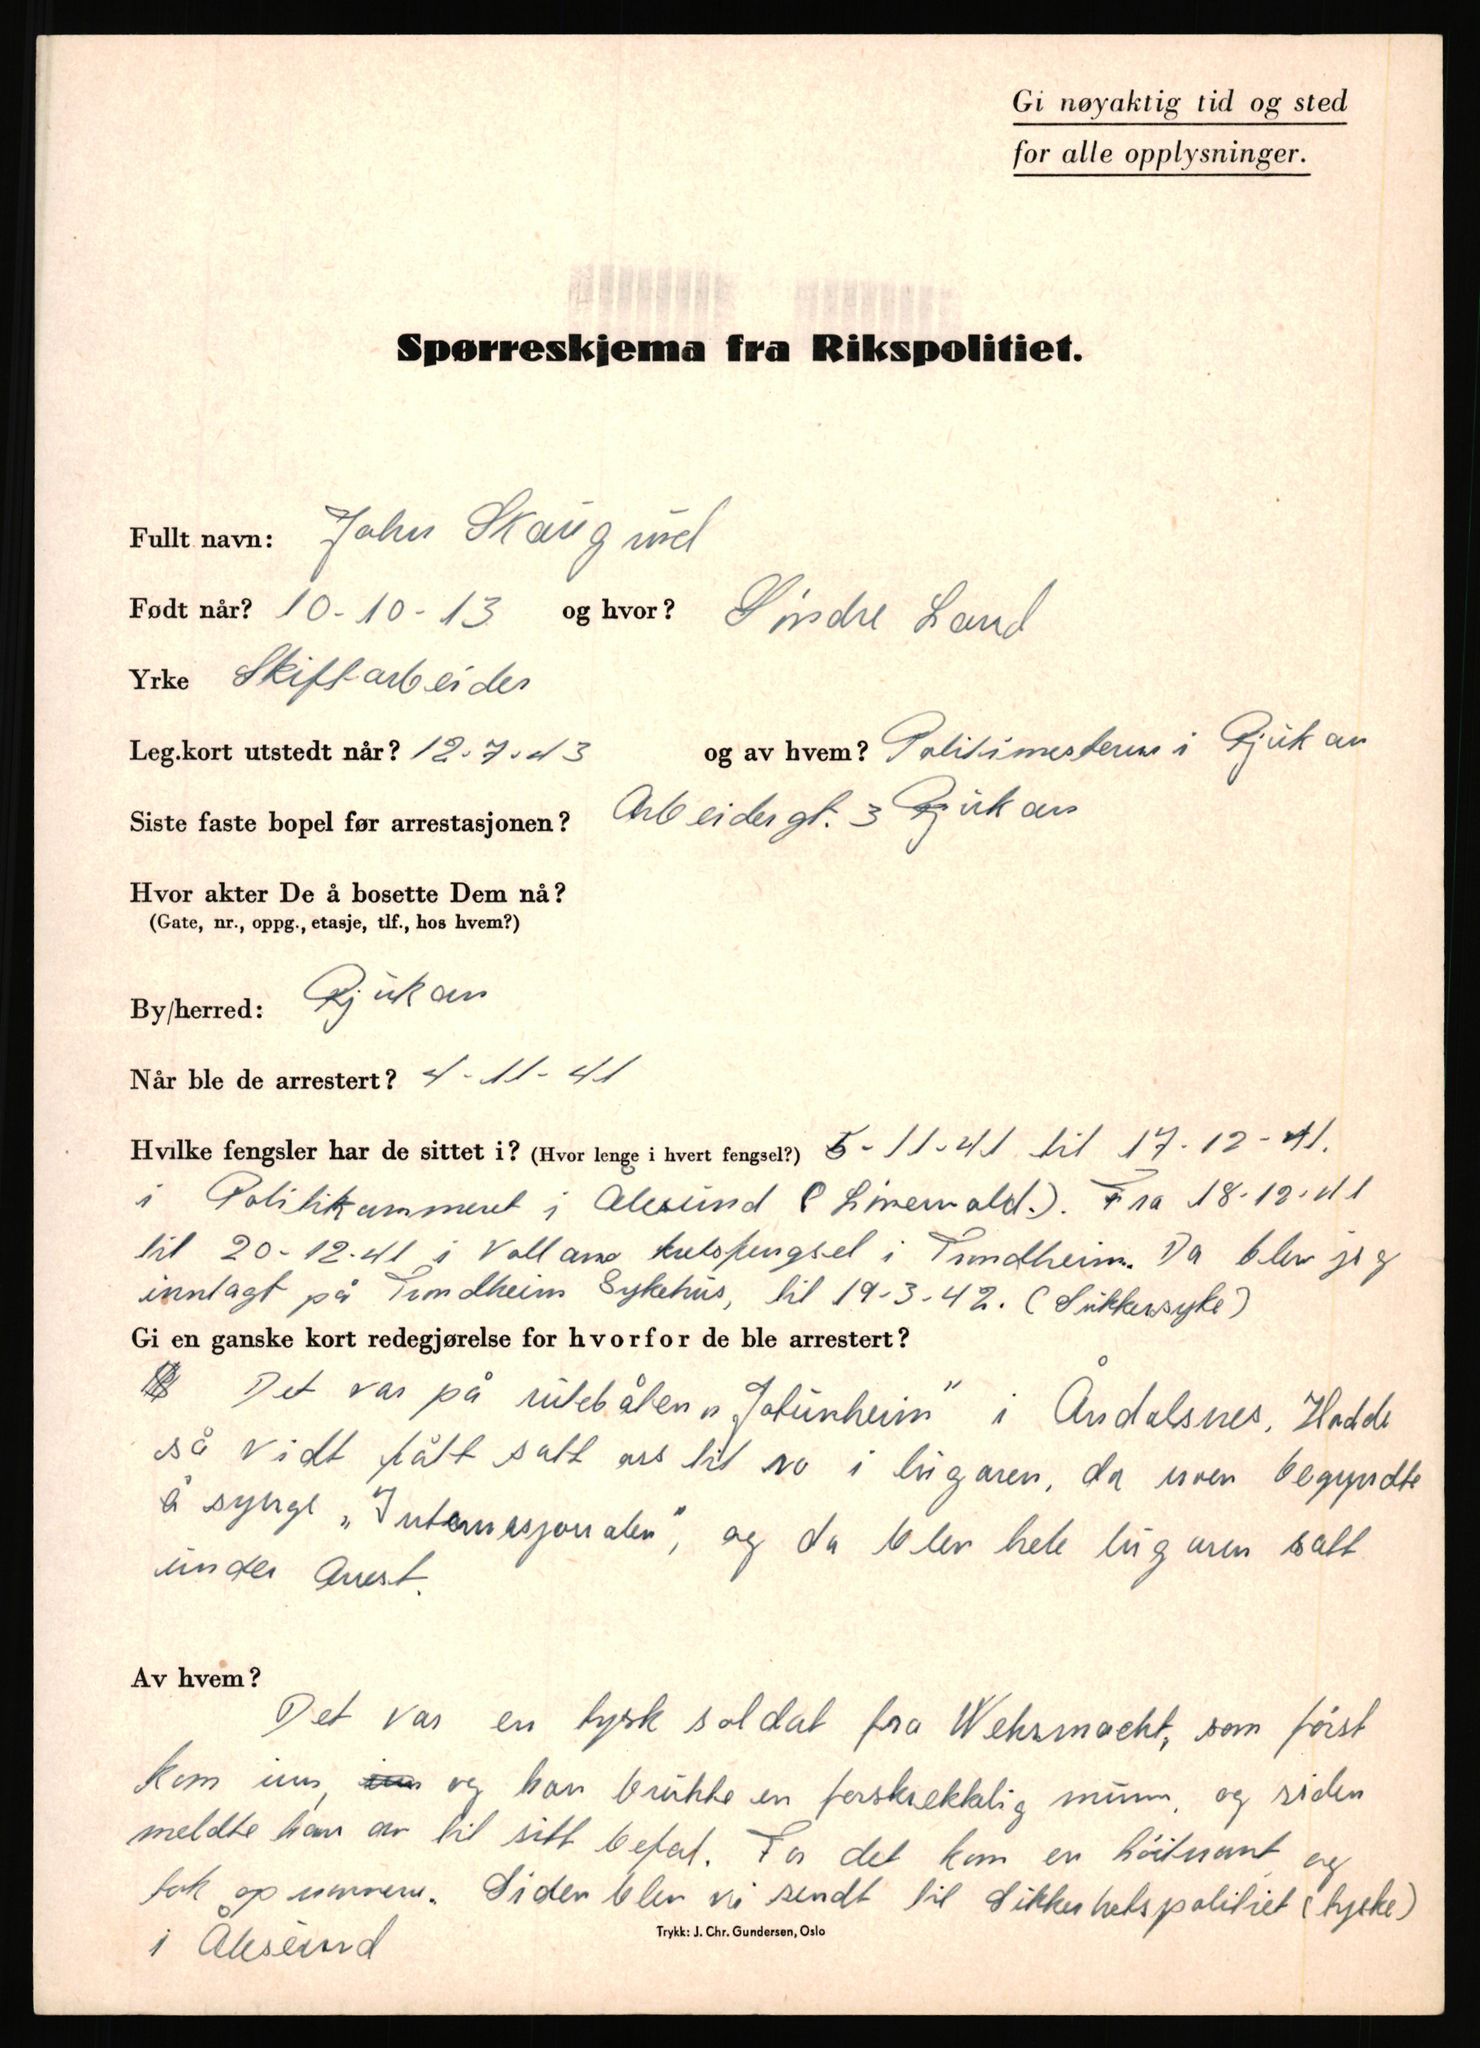 Gi nøyaktig tid og sted
for alle opplysninger.
Spørreskjema fra Rikspolitiet.
Fullt navn: John Skaugrud
Født når? 10-10-13 og hvor? Söndre Land
Yrke Skiftarbeider
Leg.kort utstedt når? 12-7-43 og av hvem? Politimesteren i Rjukan
Siste faste bopel før arrestasjonen? Arbeidergt. 3 Rjukan
Hvor akter De å bosette Dem nå?
(Gate, nr., oppg., etasje, tlf., hos hvem?)
By/herred: Rjukan
Når ble de arrestert? 4-11-41
Hvilke fengsler har de sittet i? (Hvor lenge i hvert fengsel?) 5-11-41 til 17-12-41.
i Politikammeret i Alesund Fra 18-12-41
til 20-12-41 i Vollan i Trondheim. Da blev jeg
innlagt på Trondheim Sykehus, til 19-3-42. (Sukkersyke)
Gi en ganske kort redegjørelse for hvorfor de ble arrestert?
Det var på rutebåten „Jotunheim" i Åndalsnes. Hadde
så vidt fått satt oss til ro i lugaren, da noen begyndte
å synge „Internasjonalen", og da blev hele lugaren satt
under Arest.
Av hvem?
Det var en tysk soldat fra Wehrmacht, som först
kom inn, og han brukte en forskrekkelig munn, og siden
meldte han av til sitt befal. For det kom en löitnant og
tok op navnene. Siden blev vi sendt til Sikkerhetspolitiet (tyske)
i Ålesund
Trykk: J. Chr. Gundersen, Oslo